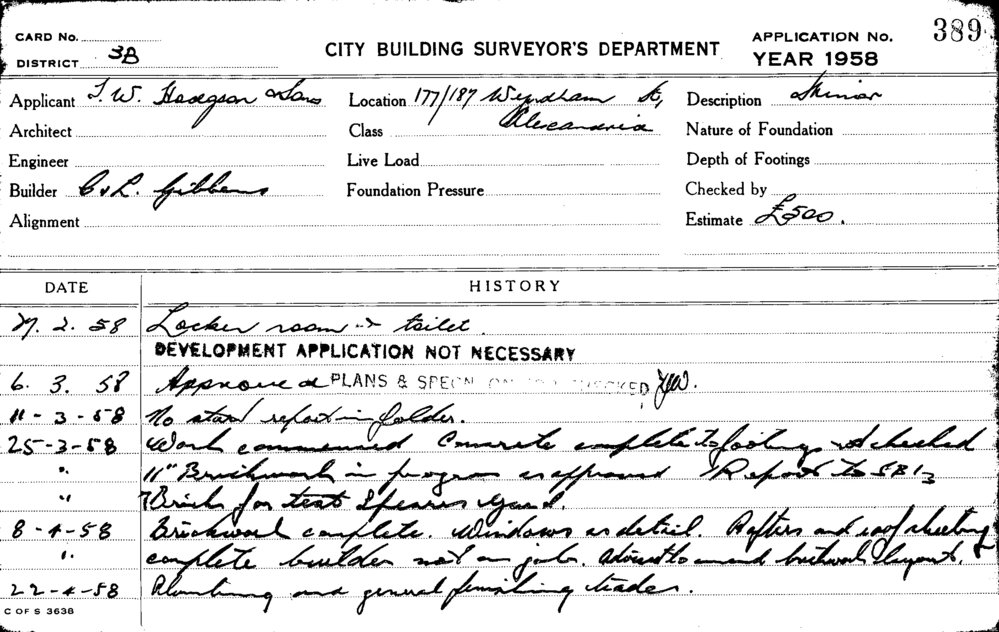 CARD No.
DISTRICT 3B
CITY BUILDING SURVEYOR'S DEPARTMENT
APPLICATION No. 389
YEAR 1958
Applicant T. W. Hodgson & Sons
Location 177/187 Wyndham St,
Description Minor
Architect
Class Alexandria
Nature of Foundation
Engineer
Live Load
Depth of Footings
Builder C & L. Gibbons
Foundation Pressure
Checked by
Alignment
Estimate £500.
DATE HISTORY
2. 58 Locker room & toilet.
DEVELOPMENT APPLICATION NOT NECESSARY
6. 3. 58 Approved PLANS & SPECN CHECKED
11-3-58 No start report in folder.
25-3-58 Work commenced Concrete complete to footings & checked
" 11" Brickwork in progress as approved Report to SB
" Bricks for test yard.
8-4-58 Brickwork complete. Windows as detail. Rafters and roof sheeting
" complete builder not on job. to amend brickwork layout.
22-4-58 Plumbing and general finishing trades.
C OF S 3638